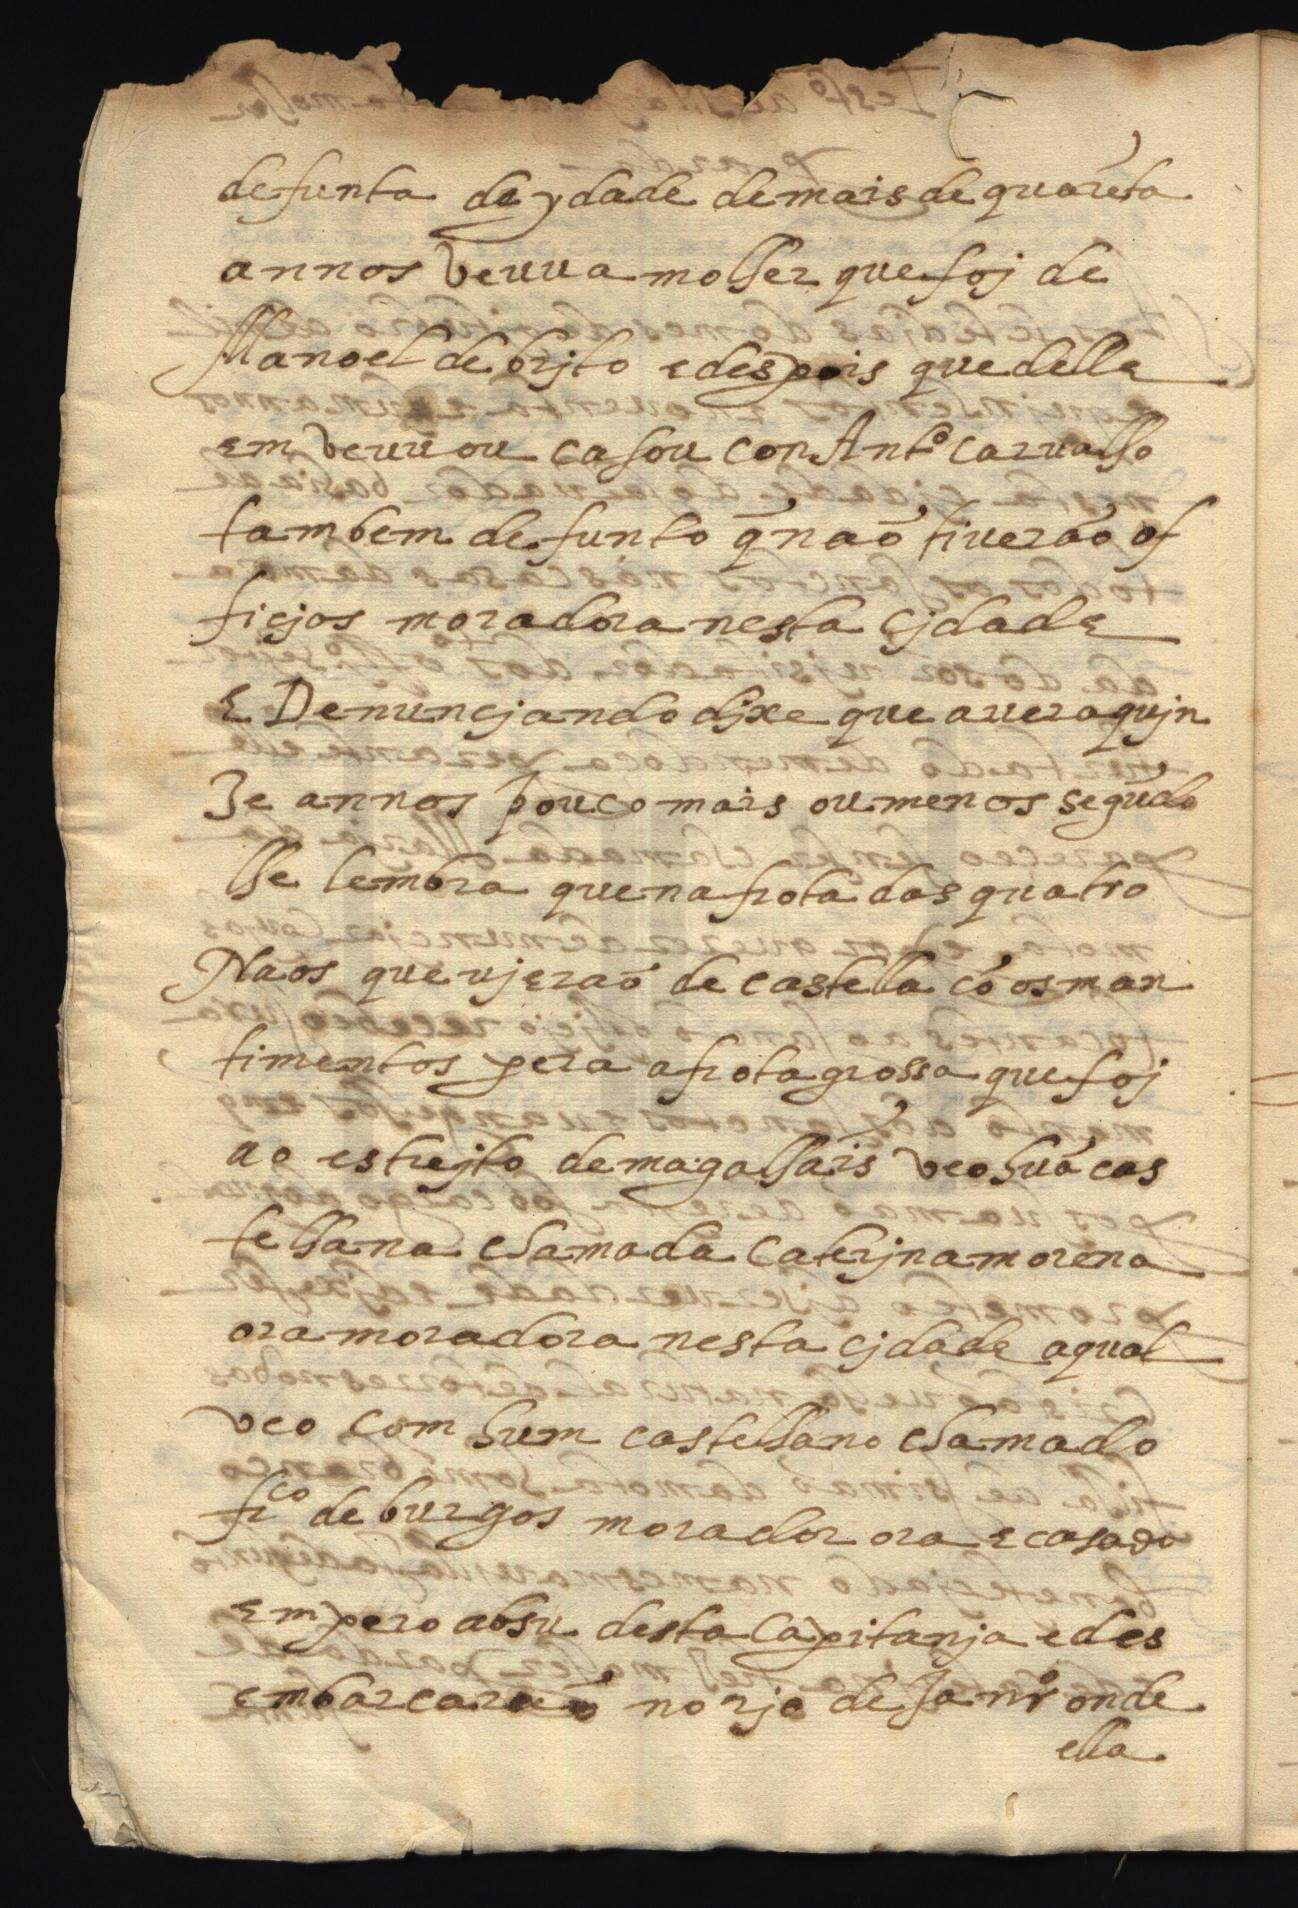 defunta de ydade de mais de quarẽta
annos veuva molher que foj de
Manoel de brjto e despois que delle
emveuvou casou con Ant.º carvalho
tambem defunto q̃ não tiverão of
ficjos moradora nesta cjdade
E Denuncjando djxe que avera qujn
ze annos pouco mais ou menos segũdo
lhe lembra que na frota das quatro
Nãos que vjerão de castella cõ os man
timentos pera a frota grossa que foj
ao estrejto de magalhãis veo huã cas
telhana chamada Caterjna morena
ora moradora nesta cjdade a qual
veo com hum castelhano chamado
fr.co de burgos morador ora e casado
em pero absu desta Capitanja e des
embarcarão no rjo de Janr.º onde
ella